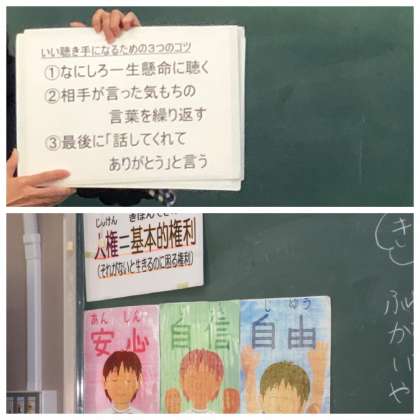 いい聴き手になるための3つのコツ
①なにしろ一生懸命に聴く
②相手が言った気もちの
言葉を繰り返す
③最後に「話してくれて
ありがとう」と言う
じんけん
人権=基本的権利
(それがないと生きるのに困る権利)
あんしん
安心
自信
じゆう
自由
ふかいや